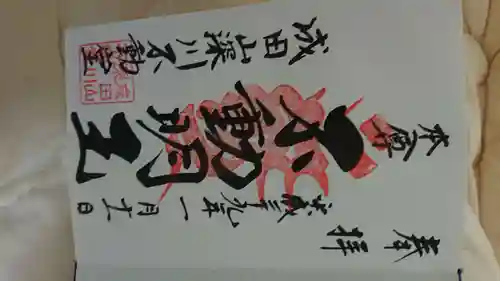 奉拝
平成二十九年一月十五日
本尊
不動明王
成田山深川不動堂